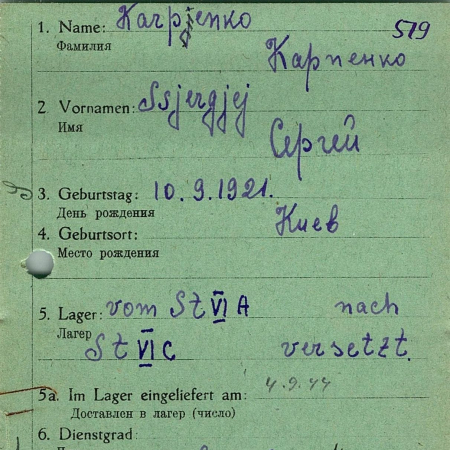 1. Name: Karpenko 519
Фамилия
Карпенко
2. Vornamen: Ssjergjej
Имя
Сергей
3. Geburtstag: 10. 9. 1921.
День рождения
Киев
4. Geburtsort:
Место рождения
5. Lager: vom St VI A nach
Лагер
St VI C versetzt.
5a. Im Lager eingeliefert am: 4.9.44
Доставлен в лагер (число)
6. Dienstgrad: